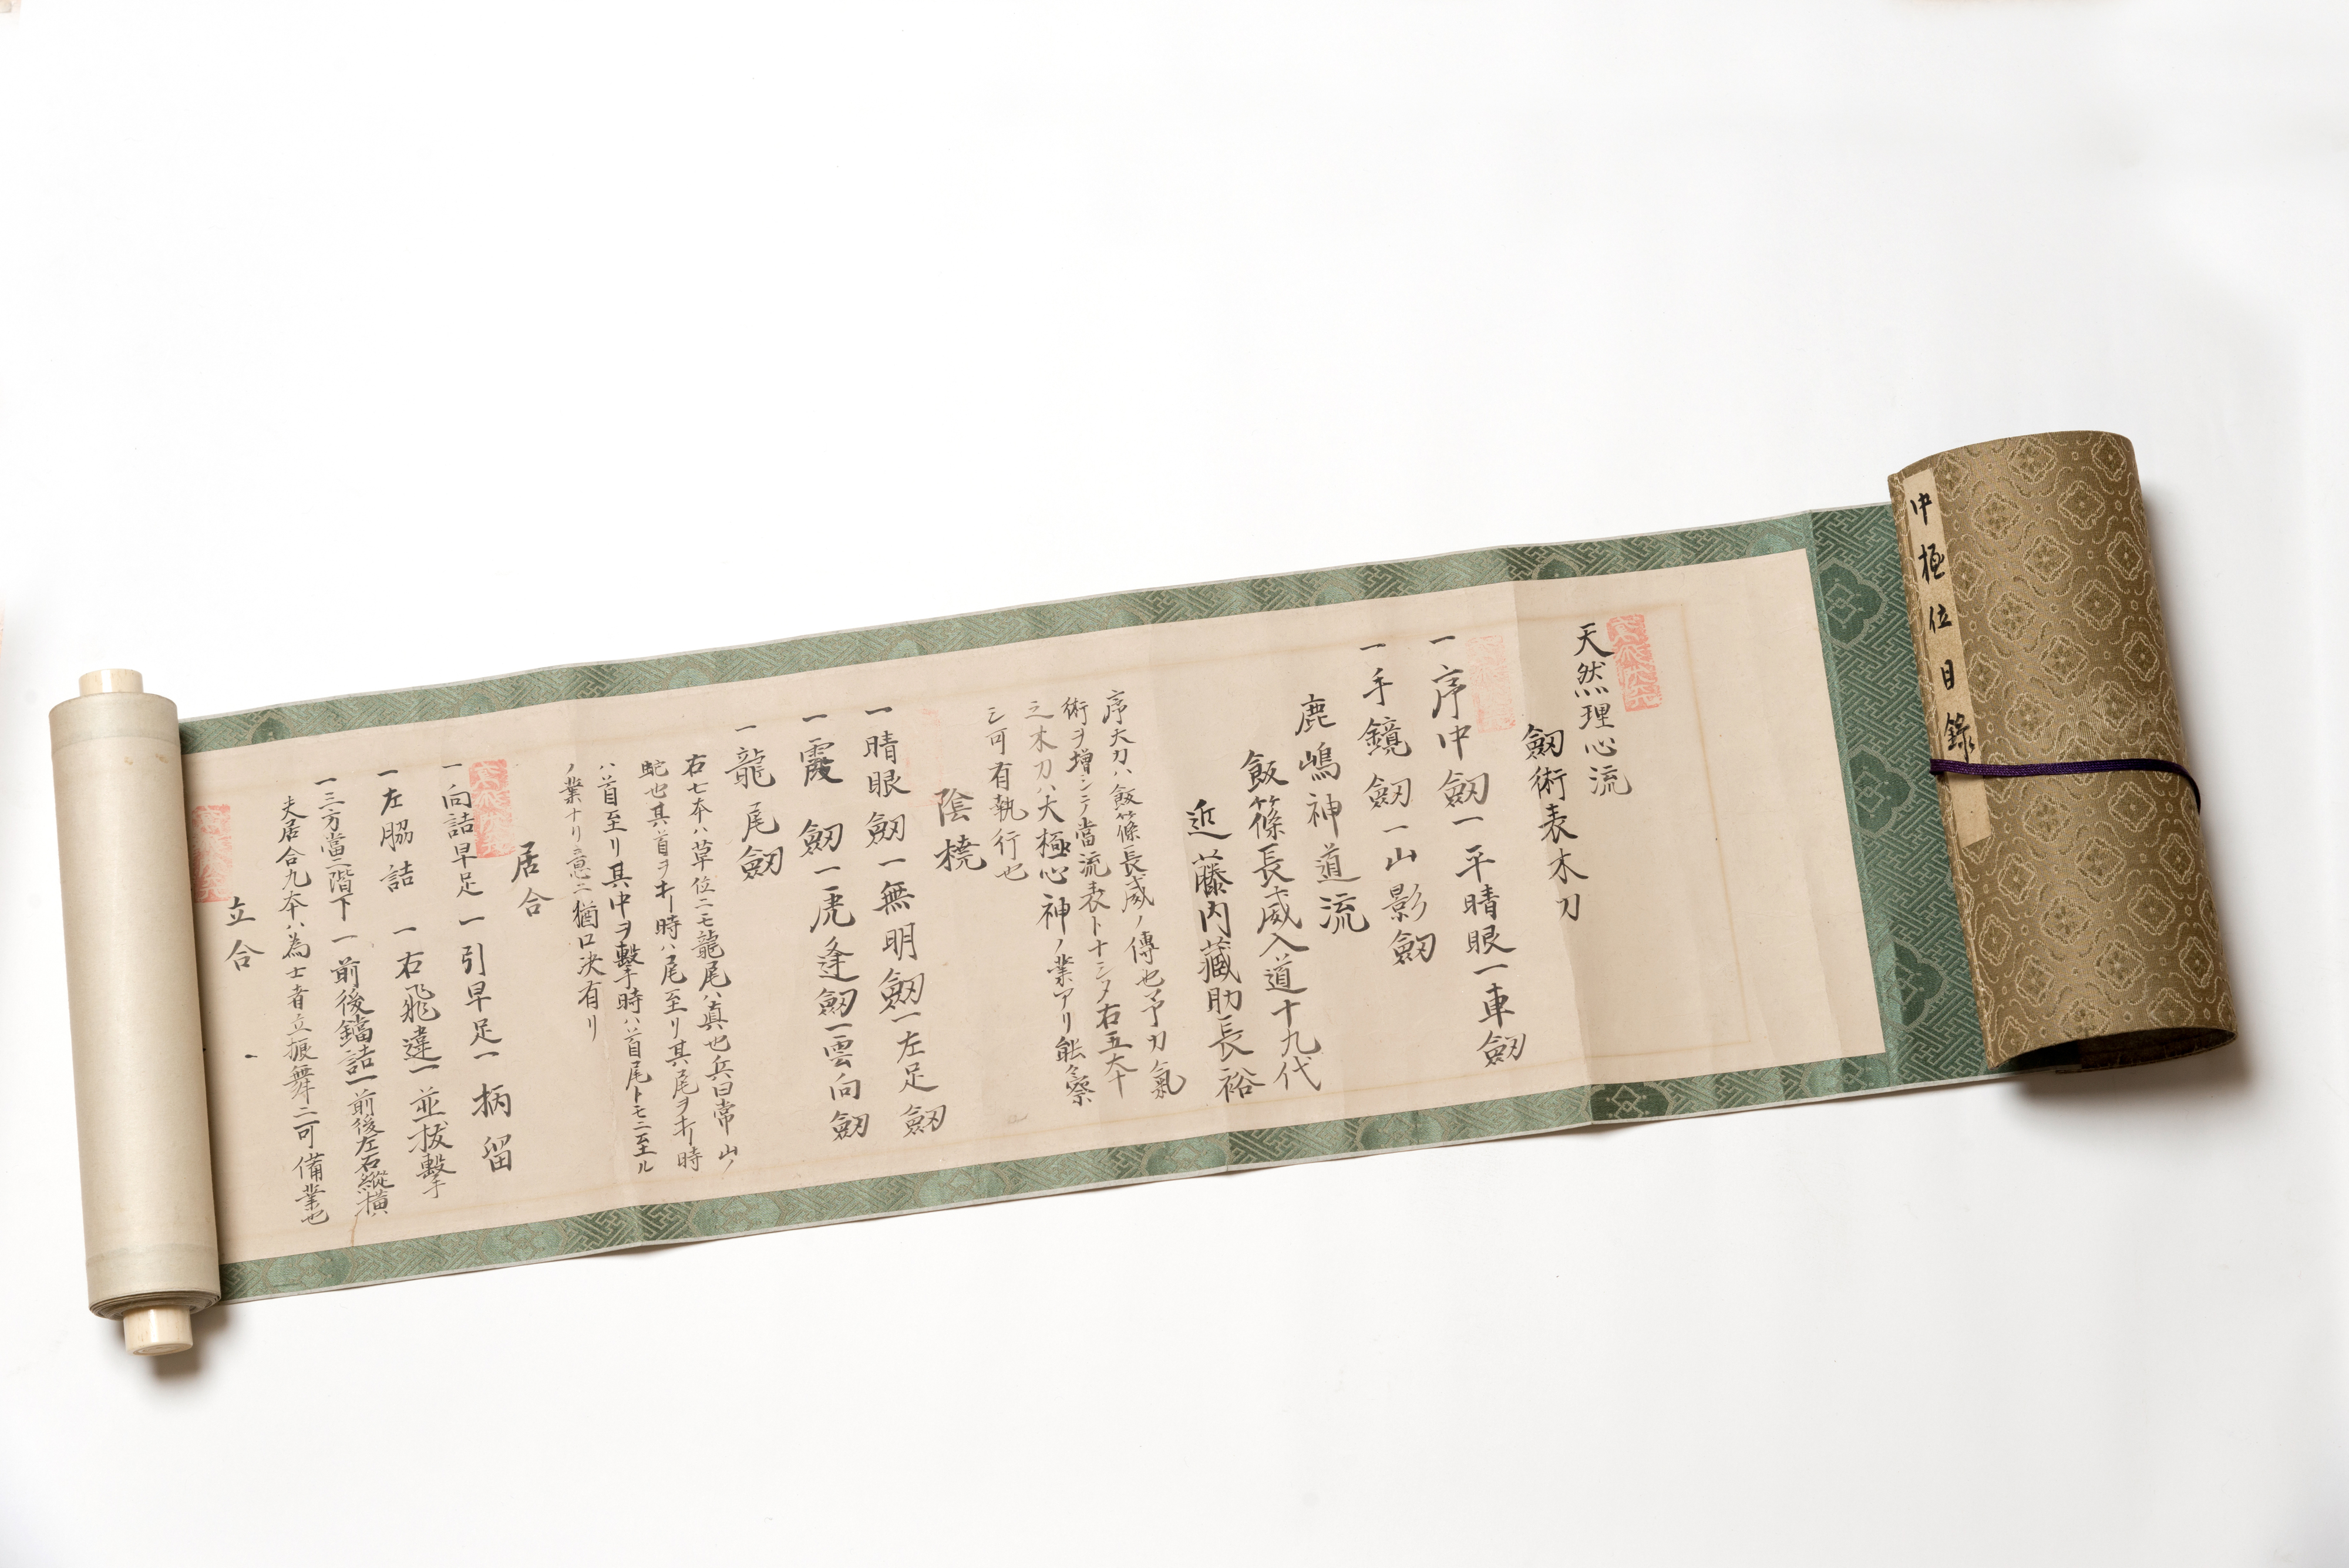 中極位目錄
天然理心流
劒術表木刀
一序中劒一平晴眼一車劒
一手鏡劒一山影劒
鹿嶋神道流
飯篠長威入道十九代
近藤内藏助長裕
序大刀ハ飯篠長威ノ傳也予刀氣
術ヲ增シテ當流表トナシヌ右五大十
之木刀ハ大極心神ノ業アリ能々察
シ可有執行也
陰橈
一晴眼劒一無明劒一左足劒
一霞劒一虎逢劒一雲向劒
一龍尾劒
右七本ハ草位ニモ龍尾ハ眞也兵曰常山ノ
蛇也其首ヲキ時ハ尾至リ其尾ヲキ時
ハ首至リ其中ヲ擊時ハ首尾トモニ至ル
ノ業ナリ意ニ猶口决有リ
居合
一向詰早足一引早足一柄留
一左脇詰一右飛違一並拔擊
一三方當二階下一前後鐺詰一前後左右縱橫
夫居合九本ハ為士者立振舞ニ可備業也
立合